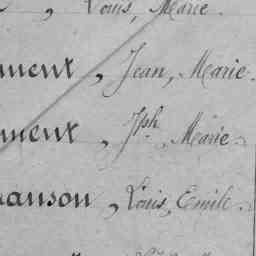 , Louis, Marie.
ment, Jean, Marie.
ment, Jph, Marie.
anson, Louis, Emile.